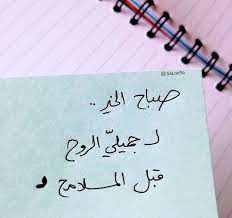 صباح الخير ..
لـ جميليّ الروح
قبل الملامح